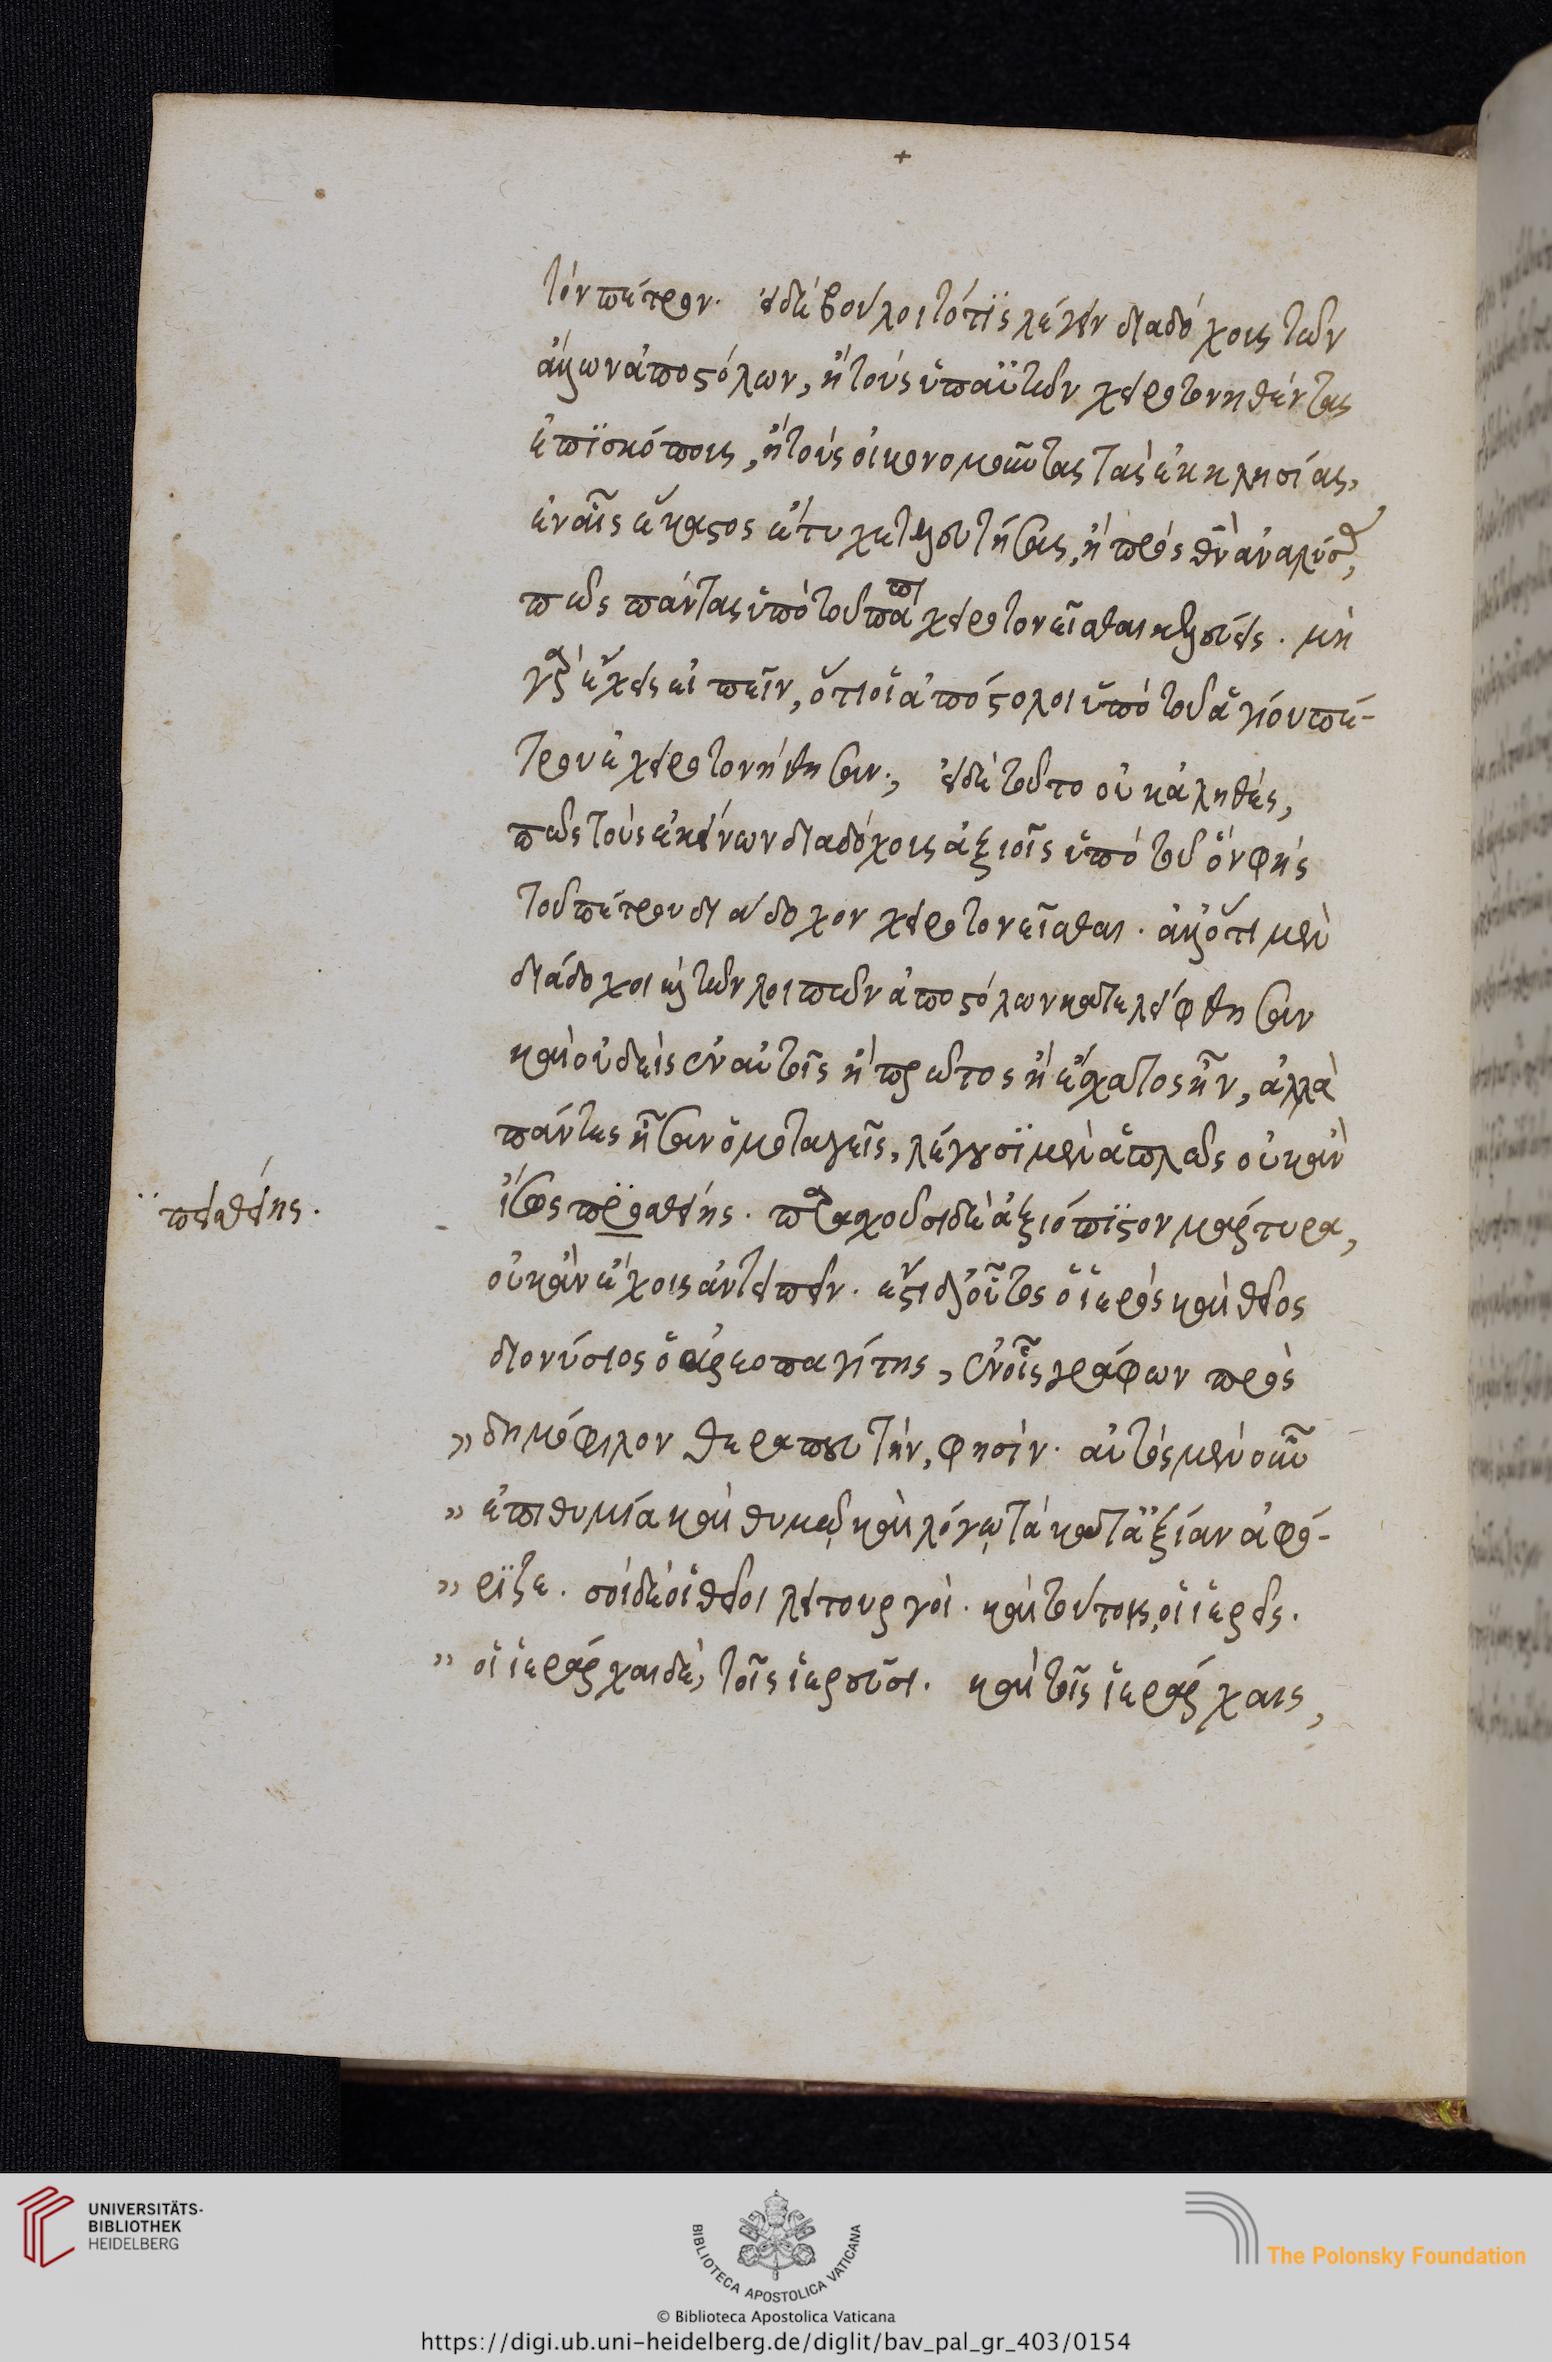 +
τὸν πέτρον. εἰ δὲ βούλοιτό τϊς λέγειν διαδόχοις τῶν
ἁγίων ἀποστόλων, ἢ τοὺς ὑπ' αὐτῶν χειροτονηθέντας
ἐπϊσκόποις, ἢ τοὺς οἰκονομοῦντας τὰς ἐκκλησίας,
ἐν αἷς ἕκαστος ἔτυχε τελευτήσας, ἢ πρὸς θν ἀναλύσας,
πῶς πάντας ὑπὸ τοῦ πάπα χειροτονεῖσθαι κελεύεις. μὴ
γὰρ ἔχεις εἰπεῖν, ὅτι οἱ ἀπόστολοι ὑπὸ τοῦ ἁγίου πέ-
τρου ἐχειροτονήθησαν., εἰ δὲ τοῦτο οὐκ ἀληθές,
πῶς τοὺς ἐκείνων διαδόχοις ἀξιοῖς ὑπὸ τοῦ ὃν φῂς
τοῦ πέτρου διάδοχον χειροτονεῖσθαι. ἀλλ' ὅτι μὲν
διάδοχοι καὶ τῶν λοιπῶν ἀποστόλων κατελείφθησαν
καὶ οὐδεὶς ἐν αὐτοῖς ἢ πρῶτος ἢ ἔσχατος ἦν, ἀλλὰ
πάντες ἦσαν ὁμοταγεῖς, λέγουσϊ μὲν ἁπλῶς οὐκ ἂν
ἴσως προσθείης. παράσχουσι δὲ ἀξιόπϊστον μάρτυρα,
οὐκ ἂν ἔχοις ἀντειπεῖν. ἔστι δὲ οὗτος ὁ ἱερὸς καὶ θεῖος
διονύσιος ὁ ἀρεοπαγίτης, ἐν οἷς γράφων πρὸς
" δημόφιλον θεραπευτὴν, φησὶν. αὐτὸς μὲν οὖν
" ἐπιθυμία καὶ θυμῷ καὶ λόγῳ τὰ κατ' ἀξίαν ἀφό-
" ρϊζε. σοὶ δὲ οἱ θεῖοι λειτουργοὶ. καὶ τούτοις, οἱ ἱερεῖς.
" οἱ ἱεράρχαι δὲ, τοῖς ἱερεῦσι. καὶ τοῖς ἱεράρχαις,
¨ πεισθείης.
UNIVERSITÄTS-
BIBLIOTHEK
HEIDELBERG
BIBLIOTECA APOSTOLICA VATICANA
The Polonsky Foundation
© Biblioteca Apostolica Vaticana
https://digi.ub.uni-heidelberg.de/diglit/bav_pal_gr_403/0154